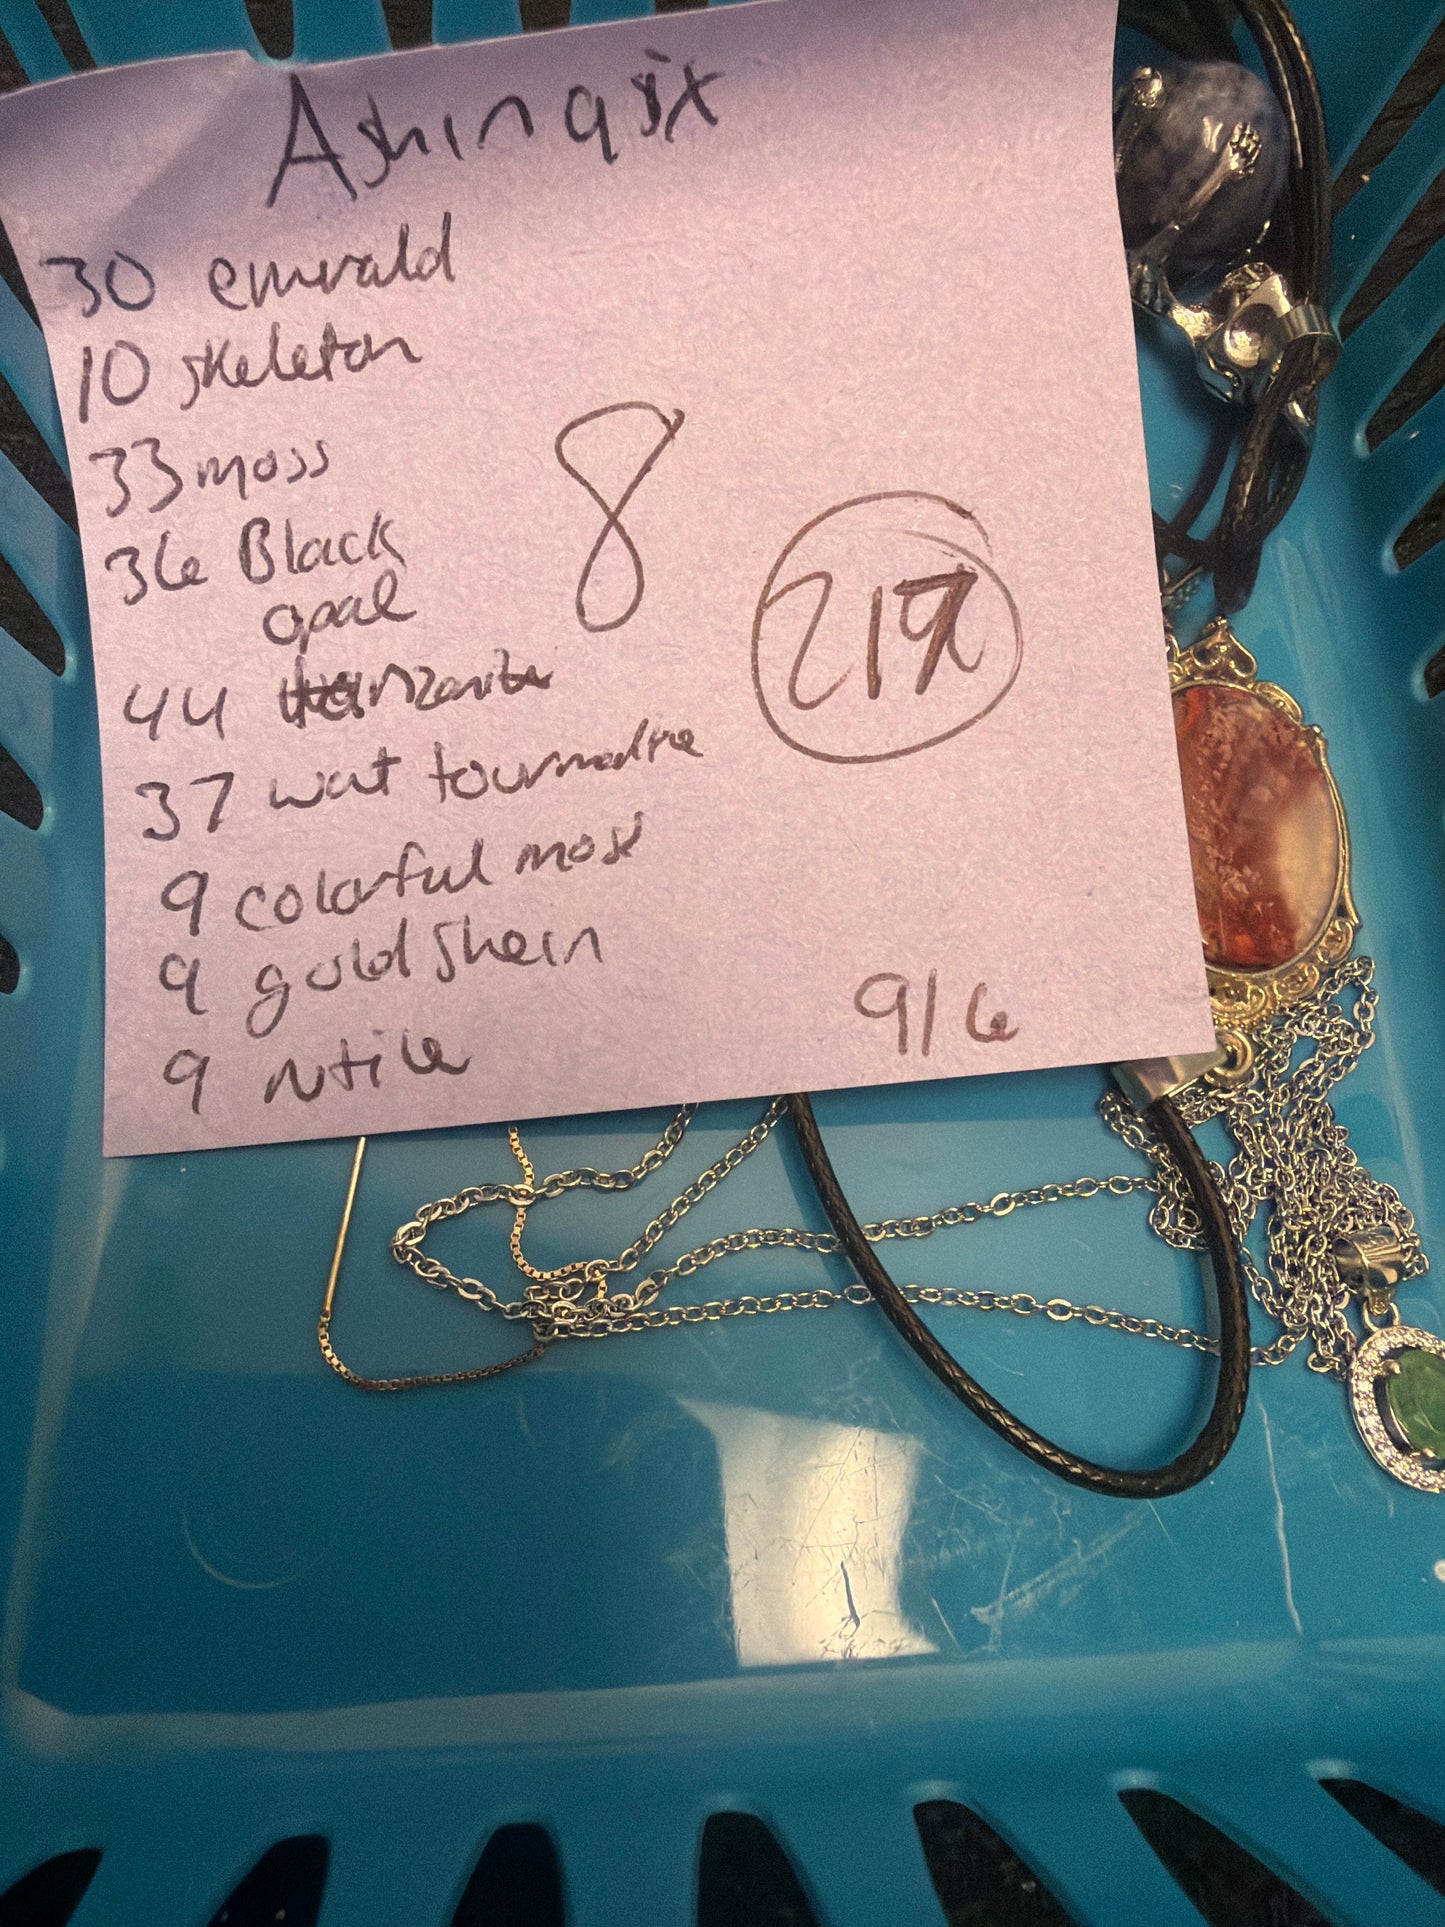 Ashinasix
30 emerald
10 skeleton
33 moss
36 Black
opal
8
44
217
37 wat tourmaline
9 colorful moss
9 gold shein
9 rutile
9/6